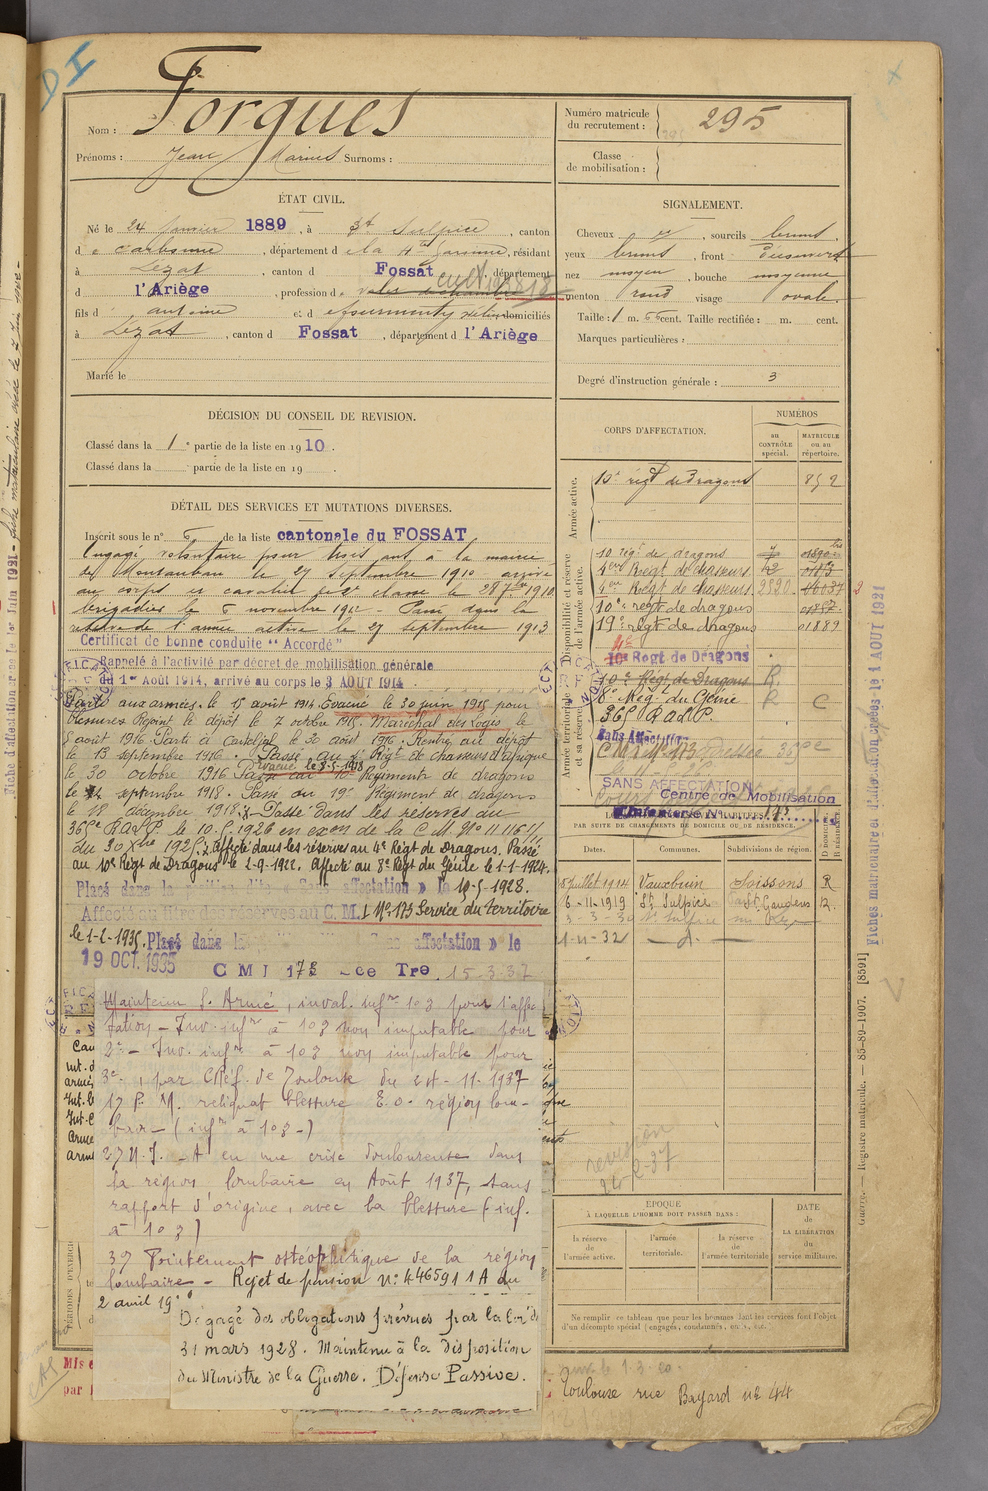 D I
Nom : Forgues
Prénoms : Jean Marius Surnoms :
Numéro matricule du recrutement : 295
Classe de mobilisation :
ÉTAT CIVIL.
Né le 24 janvier 1889, à St Sulpice, canton
de Carbonne, département de la Hte Garonne, résidant
à Lézat, canton d Fossat, département
d l'Ariège, profession de valet de chambre
fils d antoine et d domiciliés
à Lézat, canton d Fossat, département d l'Ariège
Marié le
SIGNALEMENT.
Cheveux et, sourcils bruns,
yeux bruns, front Découvert
nez moyen, bouche moyenne
menton rond visage ovale.
Taille : 1 m. 66 cent. Taille rectifiée : m. cent.
Marques particulières :
Degré d'instruction générale : 3
DÉCISION DU CONSEIL DE REVISION.
Classé dans la 1e partie de la liste en 1910.
Classé dans la partie de la liste en 19 .
DÉTAIL DES SERVICES ET MUTATIONS DIVERSES.
Inscrit sous le n° 6 de la liste cantonale du FOSSAT
Engagé volontaire pour trois ans à la mairie
de Montauban le 27 septembre 1910 arrivé
au corps et cavalier de 2e classe le 28 7bre 1910
brigadier le 6 novembre 1912 - Passé dans la
réserve de l'armée active le 27 septembre 1913
Certificat de bonne conduite "Accordé"
Rappelé à l'activité par décret de mobilisation générale
du 1er Août 1914, arrivé au corps le 3 AOUT 1914.
Parti aux armées le 15 août 1914. Evacué le 30 juin 1915 pour
blessures Rejoint le dépôt le 7 octobre 1915. Maréchal des Logis le
5 août 1916. Parti à le 30 août 1916. Rentré au dépôt
le 13 septembre 1916. Passé au 4e Régt de chasseurs d'afrique
Evacué le 8-5-1918
le 30 octobre 1916 Passé au 10e Régiment de dragons
le septembre 1918. Passé au 19e Régiment de dragons
le 18 décembre 1918. Passé dans les réserves du
36e R.a.L.P. le 10.5.1926 en exon de la C.M. No 11.116 1/11
du 30 Xbre 1925. affecté dans les réserves au 4e Régt de Dragons. Passé
au 10e Régt de Dragons le 2-9-1922. Affecté au 8e Régt du Génie le 1-1-1924.
Placé dans la position dite « Sans affectation » le 10-5-1928.
Affecté au titre des réserves au C.M.I No 173 Service du territoire
le 1-2-1935. Placé dans la affectation » le
19 OCT. 1935 C M I 173 - ce Tre 15-3-37
Maintenu S. Armé, inval. infre 10% pour l'affec
tation - Inv. infre à 10% non imputable pour
2e - Inv. infre à 10% non imputable pour
3e, par C.Réf. de Toulouse du 24-11-1937
1) P. M. reliquat blessure E.O. région lom-
baire - (infre à 10% -)
2) N.I. - A eu une crise douloureuse dans
la région lombaire en Août 1937, sans
rapport d'origine, avec la blessure (inf.
à 10%)
3) Pointement ostéophitique de la région
lombaire - Rejet de pension n° 446591 1A du
2 avril 19
Dégagé des obligations prévues par la loi du
31 mars 1928. Maintenu à la disposition
du Ministre de la Guerre. Défense Passive.
CORPS D'AFFECTATION.
NUMÉROS
au CONTRÔLE spécial.
MATRICULE ou au répertoire.
Armée active.
10e régt de Dragons 852
Disponibilité et réserve de l'armée active.
10 régt de dragons
4eme Régt de chasseurs
4eme Régt de chasseurs 2220
10e regt de dragons
19e régt de dragons 01889
Armée territoriale et sa réserve.
4e
10e Regt de Dragons
10e Régt de Dragons R
8e Rég. du Génie R C
36e R.a.L.P.
Sans Affectation
C M I No 173
SANS AFFECTATION
Centre de Mobilisation
d'Infanterie No 173
PAR SUITE DE CHANGEMENTS DE DOMICILE OU DE RÉSIDENCE.
Dates. Communes. Subdivisions de région. D DOMICILE. R RÉSIDENCE.
8 juillet 1914 Vauxbuin Soissons R
6-11-1919 St Sulpice St Gaudens R.
3-3-30 St Sulpice
1-11-32 - d° -
revision
24-2-37
EPOQUE
À LAQUELLE L'HOMME DOIT PASSER DANS :
la réserve de l'armée active.
l'armée territoriale.
la réserve de l'armée territoriale
DATE de LA LIBÉRATION du service militaire.
Ne remplir ce tableau que pour les hommes dont les services font l'objet
d'un décompte spécial (engagés, condamnés, etc.).
Toulouse rue Bayard no 44
PÉRIODES D'EXERCI
Mis e
par
Fiches matricules et d'affectation créées le 1 AOUT 1921
Guerre. — Registre matricule. — 85-89-1907. [8591]
Fiche d'affectation créée le 1er Juin 1921 - fiche matriculaire créée le 7 Juin 1922 -